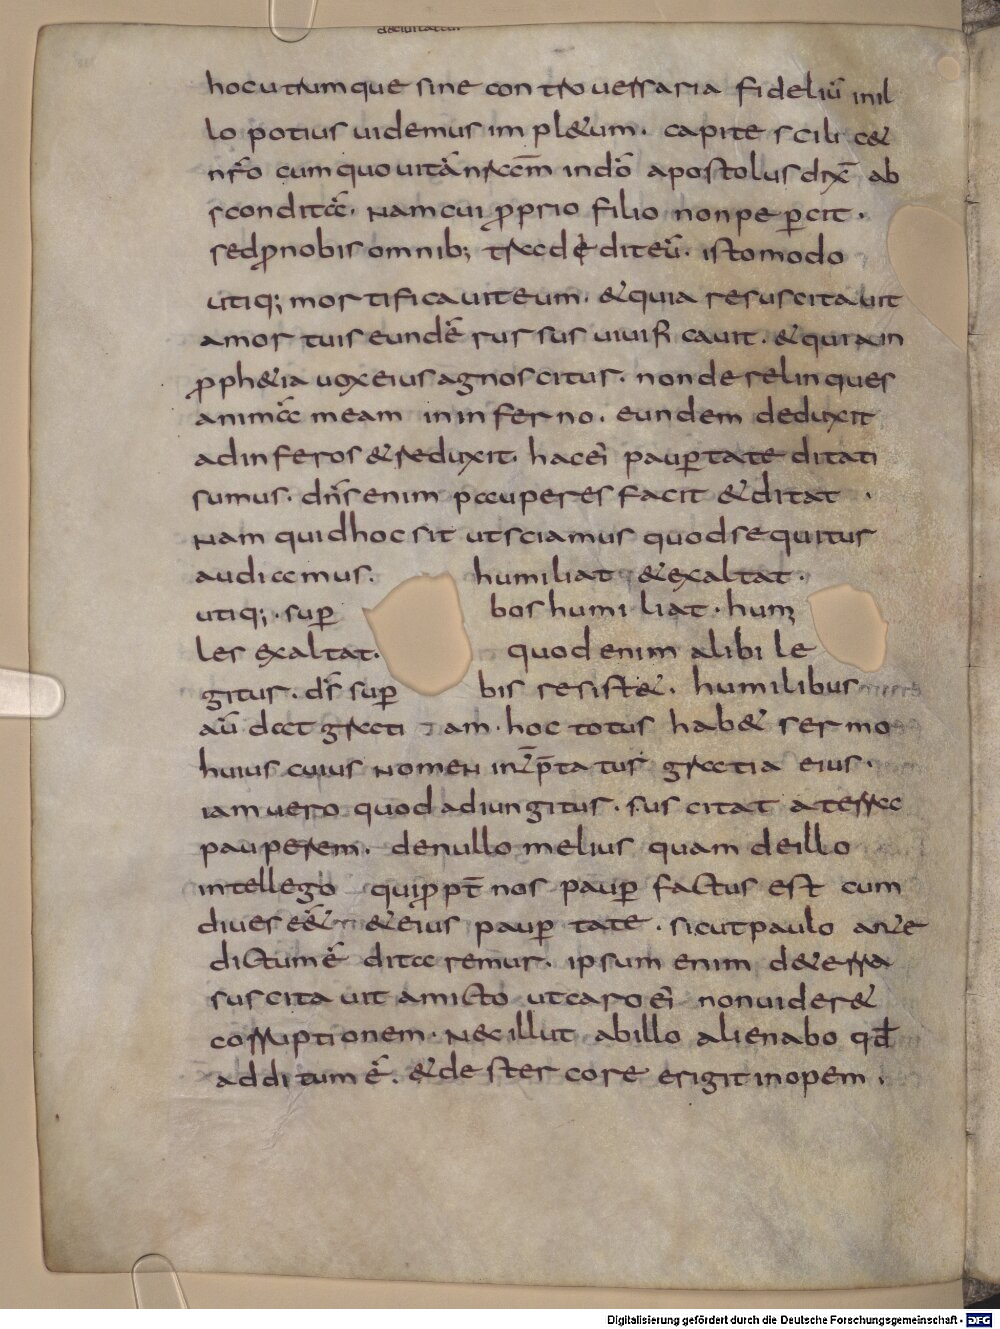 deciuitate
hoc utrumque sine controuersaria fideliū inil
lo potius uidemus impl&um. capite scilic&
nr̄o cum quo uitā nrām in dō apostolus dix̄ ab
sconditā. Nam cui ꝓprio filio non peꝑcit.
sed ꝓ nobis omnib; tradedit eū. isto modo
utiq; mortificauit eum. & quia resuscitauit
amortuis eundē rursus uiuificauit. & quia in
ꝓph&ia uox eius agnoscitur. non derelinques
animā meam in inferno. eundem deduxit
ad inferos & reduxit. hac ei paupertate ditati
sumus. dn̄s enim pauperes facit & ditat.
Nam quid hoc sit ut sciamus quod sequitur
audiamus. humiliat & exaltat.
utiq; suꝑbos humiliat. humi
les exaltat. quod enim alibi le
gitur. ds̄ suꝑbis resist&. humilibus
aū dat gratiam. hoc totus hab& sermo
huius cuius nomen interp̄tatur gratia eius.
iam uero quod adiungitur. suscitat a terra
pauperem. de nullo melius quam de illo
intellego qui ꝓpt̄ nos pauꝑ factus est cum
diues eē& & eius pauꝑtate. sicut paulo ante
dictum ē ditaremur. ipsum enim de terra
suscitauit tam cito ut caro ei non uider&
corruptionem. Nec illut ab illo alienabo qd̄
additum ē. & de stercore erigit inopem.
Digitalisierung gefördert durch die Deutsche Forschungsgemeinschaft - DFG